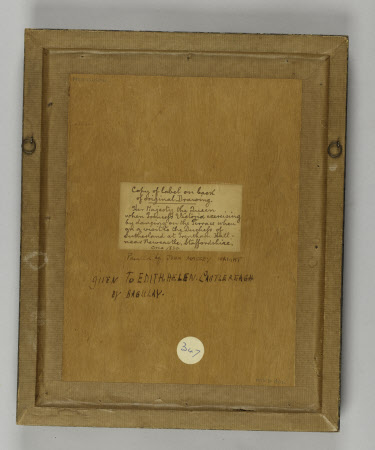 Copy of label on back
of original Drawing.
Her Majesty the Queen
when Princess Victoria exercising
by dancing on the Terrace when
on a visit to the Duchess of
Sutherland at Trentham Hall
near Newcastle, Staffordshire.
by John
given To EDITH. HELEN. CASTLEREAGH
by
347